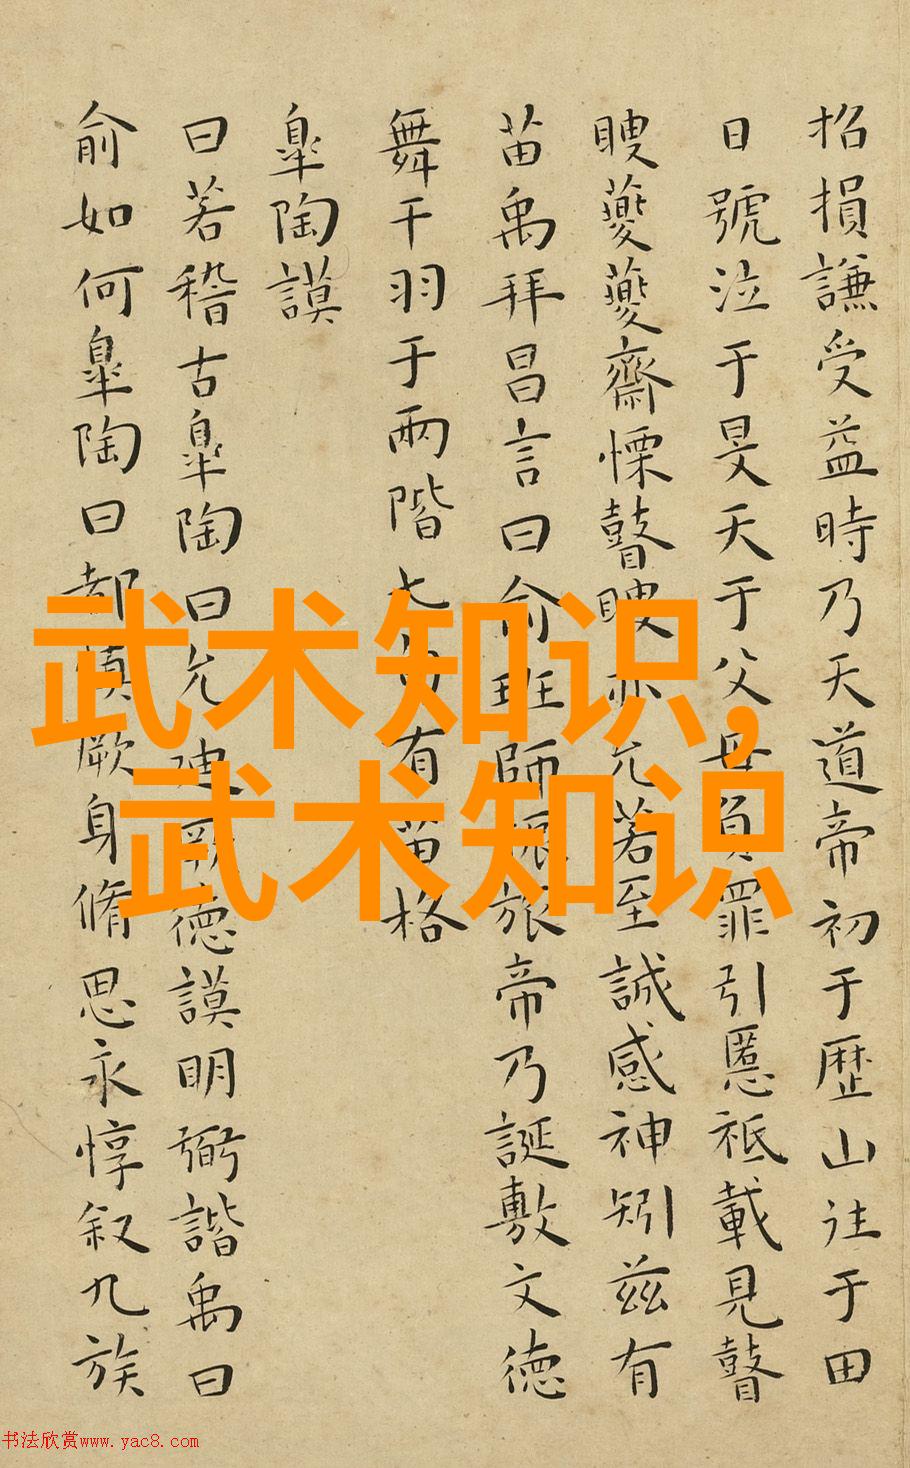 招損謙受益時乃天道帝初于歴山往于田
日號泣于旻天于父母負罪引慝祗載見瞽
瞍夔夔齋慄瞽瞍亦允若至誠感神矧兹有
苗禹拜昌言曰俞班師振旅帝乃誕敷文德
舞干羽于兩階七旬有苗格
皐陶謨
曰若稽古皐陶曰允迪厥德謨明弼諧禹曰
俞如何皐陶曰都慎厥身脩思永惇叙九族
武术知识,
武术知识
书法欣赏www.yac8.com